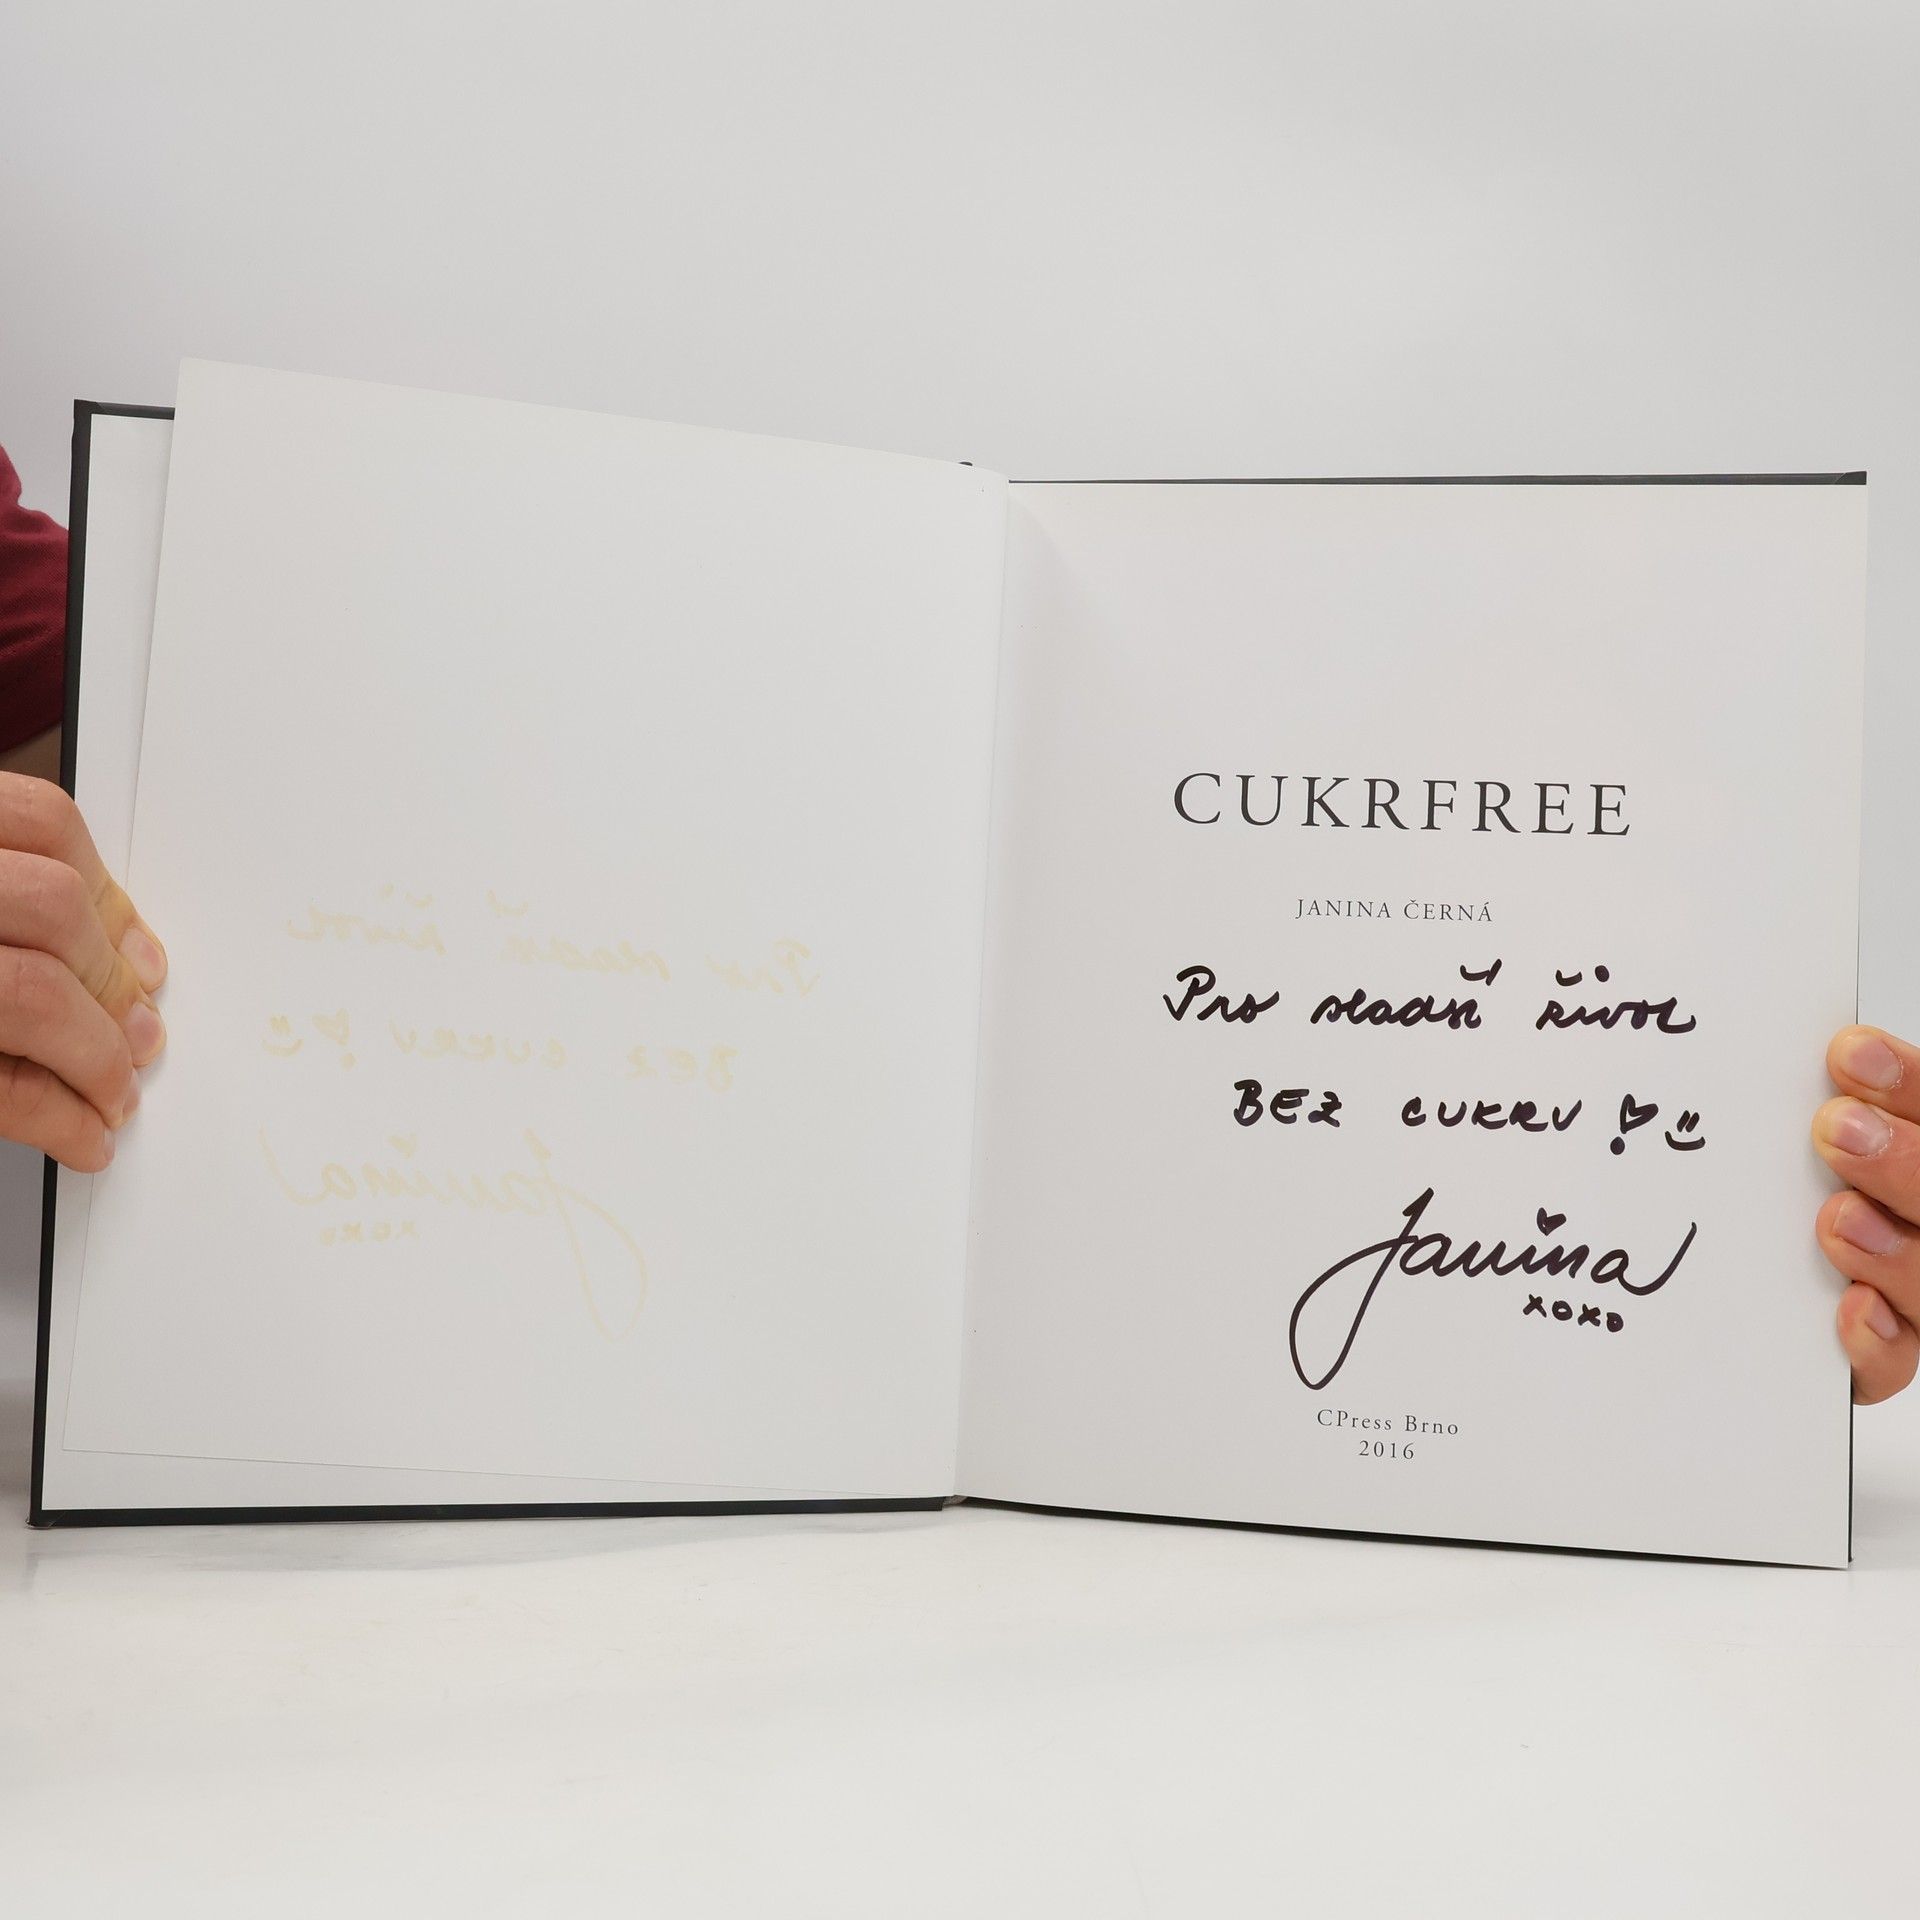 CUKRFREE
JANINA ČERNÁ
Pro sladší život
BEZ CUKRU !
Janina
xoxo
CPress Brno
2016